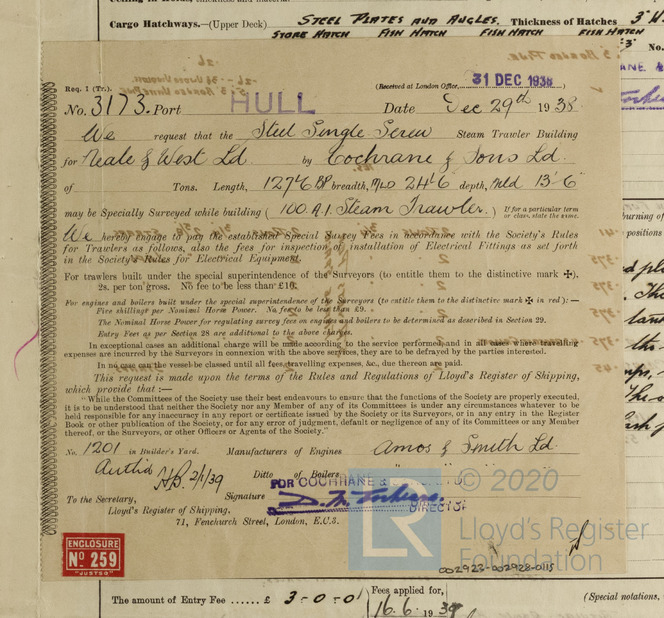 Cargo Hatchways.—(Upper Deck) STEEL PLATES AND ANGLES. Thickness of Hatches 3"
STORE HATCH FISH HATCH FISH HATCH FISH HATCH
Req. 1 (Tr.).
(Received at London Office, 31 DEC 1938
No. 3173. Port HULL Date Dec 29th 1938.
We request that the Steel Single Screw Steam Trawler Building
for Neale & West Ld. by Cochrane & Sons Ld.
of Tons. Length, 127'6 BP breadth, Mld 24'6 depth, Mld 13'-6"
may be Specially Surveyed while building ( 100.A.1. Steam Trawler. ) If for a particular term or class, state the same.
We hereby engage to pay the established Special Survey Fees in accordance with the Society's Rules
for Trawlers as follows, also the fees for inspection of installation of Electrical Fittings as set forth
in the Society's Rules for Electrical Equipment.
For trawlers built under the special superintendence of the Surveyors (to entitle them to the distinctive mark ✠).
2s. per ton gross. No fee to be less than £10.
For engines and boilers built under the special superintendence of the Surveyors (to entitle them to the distinctive mark ✠ in red):—
Five shillings per Nominal Horse Power. No fee to be less than £9.
The Nominal Horse Power for regulating survey fees on engines and boilers to be determined as described in Section 29.
Entry Fees as per Section 28 are additional to the above charges.
In exceptional cases an additional charge will be made according to the service performed and in all cases where travelling
expenses are incurred by the Surveyors in connexion with the above services, they are to be defrayed by the parties interested.
In no case can the vessel be classed until all fees, travelling expenses, &c., due thereon are paid.
This request is made upon the terms of the Rules and Regulations of Lloyd's Register of Shipping,
which provide that :—
"While the Committees of the Society use their best endeavours to ensure that the functions of the Society are properly executed,
it is to be understood that neither the Society nor any Member of any of its Committees is under any circumstances whatever to be
held responsible for any inaccuracy in any report or certificate issued by the Society or its Surveyors, or in any entry in the Register
Book or other publication of the Society, or for any error of judgment, default or negligence of any of its Committees or any Member
thereof, or the Surveyors, or other Officers or Agents of the Society."
No. 1201 in Builder's Yard. Manufacturers of Engines Amos & Smith Ld.
2/1/39 Ditto of Boilers " "
FOR COCHRANE &
To the Secretary, Signature
Lloyd's Register of Shipping, DIRECTOR
71, Fenchurch Street, London, E.C.3.
© 2020
LR Lloyd's Register
Foundation
ENCLOSURE
No 259
"JUSTED"
002923-002928-0115
The amount of Entry Fee ...... £ 3-0-0 Fees applied for,
16.6.1939
(Special notations,